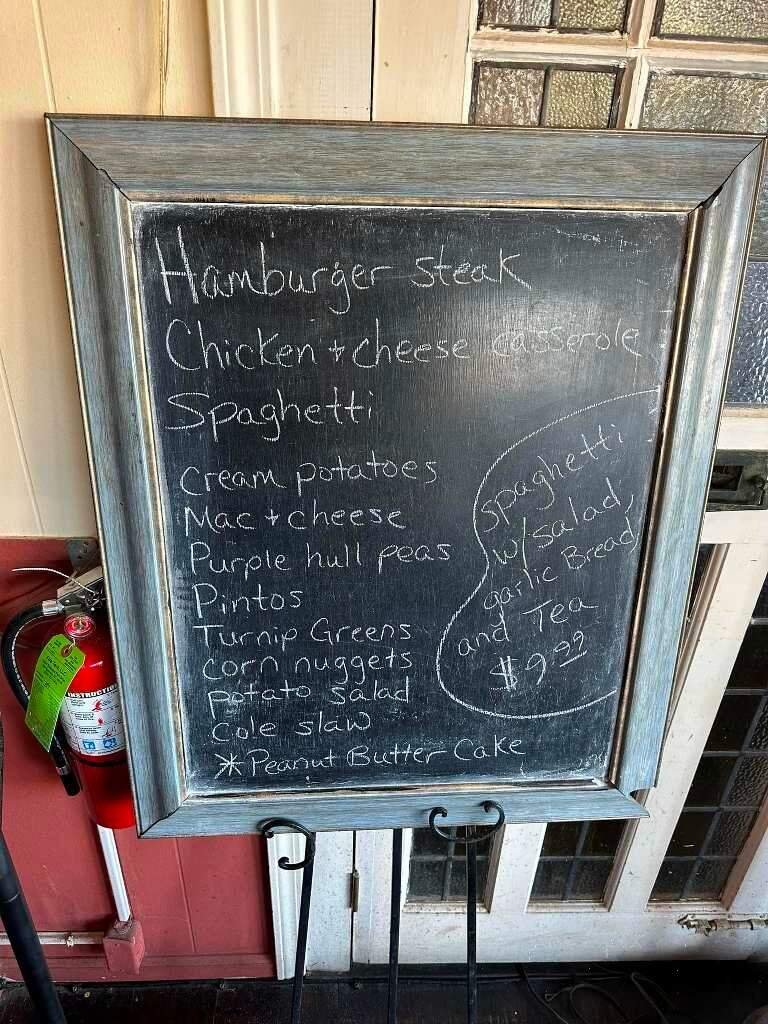 Hamburger steak
Chicken + cheese casserole
Spaghetti
cream potatoes
Mac + cheese
Purple hull peas
Pintos
Turnip Greens
corn nuggets
potato salad
Cole slaw
* Peanut Butter Cake
spaghetti
w/ salad,
garlic Bread
and Tea
$9.99
INSTRUCTIONS